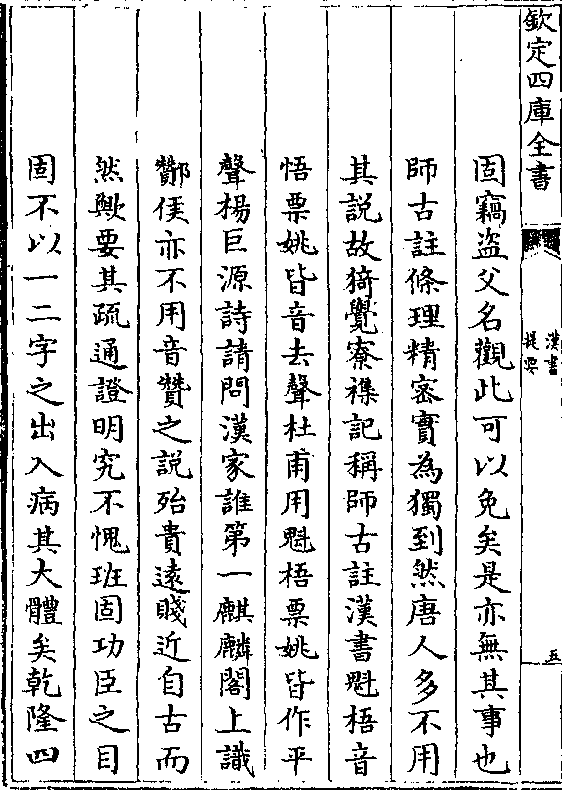 欽定四庫全書
漢書
提要
五
固竊盗父名觀此可以免矣是亦無其事也
師古註條理精密實為獨到然唐人多不用
其說故猗覺寮襍記稱師古註漢書魁梧音
悟票姚皆音去聲杜甫用魁梧票姚皆作平
聲楊巨源詩請問漢家誰第一麒麟閣上識
酇侯亦不用音贊之說殆貴遠賤近自古而
然歟要其疏通證明究不愧班固功臣之目
固不以一二字之出入病其大體矣乾隆四